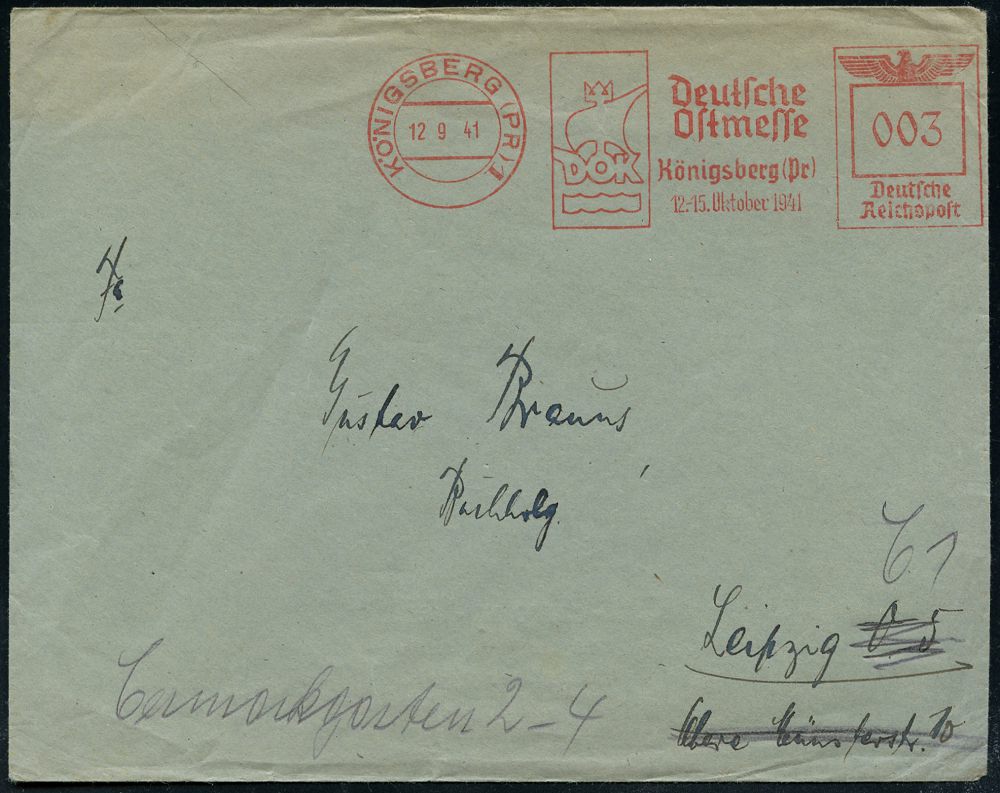 KÖNIGSBERG (PR) 1
12 9 41
DOK
Deutsche
Ostmesse
Königsberg (Pr)
12.-15. Oktober 1941
003
Deutsche
Reichspost
Fa
Gustav Brauns
Buchholg.
C 1
Leipzig O 5
Obere Münsterstr. 10
2-4